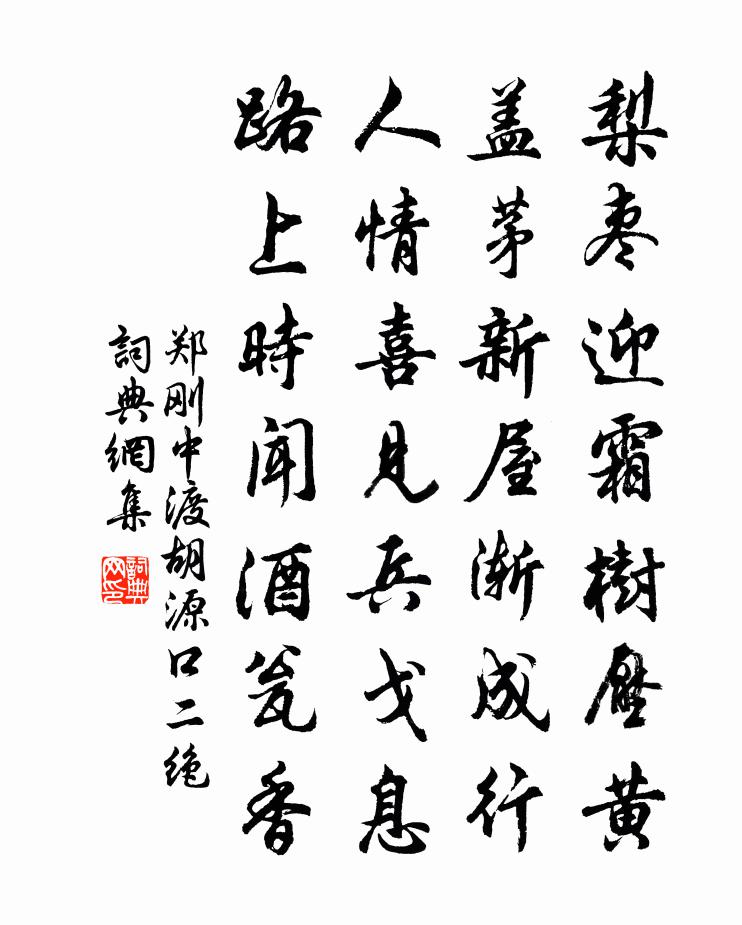 梨枣迎霜樹壓黄
盖茅新屋渐成行
人情喜見兵戈息
路上時闻酒瓮香
郑刚中渡胡源口二绝
詞典網集
詞典網印